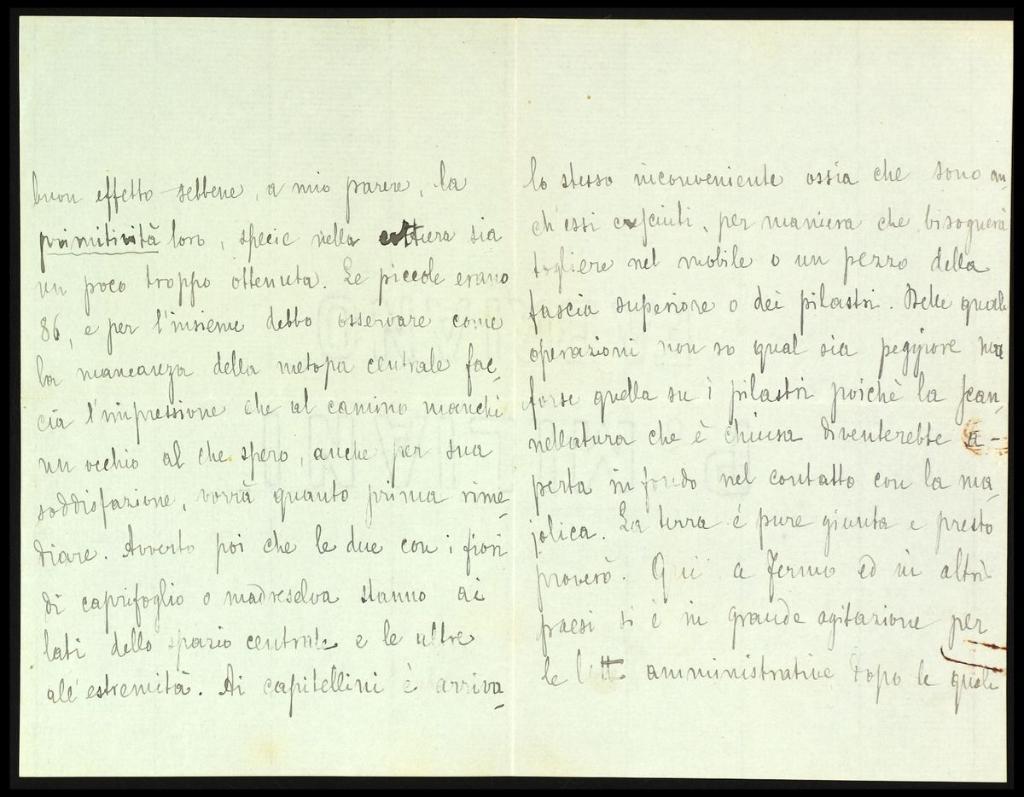 buon effetto sebbene, a mio parere, la
primitività loro, specie nella cottura sia
un poco troppo ottenuta. Le piccole erano
86, e per l'insieme debbo osservare come
la mancanza della metopa centrale fac-
cia l'impressione che al camino manchi
un occhio al che spero, anche per sua
soddisfazione, vorrà quanto prima rime-
diare. Avverto poi che le due con i fiori
di caprifoglio o madreselva stanno ai
lati dello spazio centrale e le altre
all'estremità. Ai capitellini è arriva-
lo stesso inconveniente ossia che sono an-
ch'essi cresciuti, per maniera che bisognerà
togliere nel mobile o un pezzo della
fascia superiore o dei pilastri. Delle quali
operazioni non so qual sia peggiore ma
forse quella su i pilastri poichè la scan-
nellatura che è chiusa diventerebbe a-
perta in fondo nel contatto con la ma-
jolica. La terra è pure giunta e presto
proverò. Qui a Fermo ed in altri
paesi si è in grande agitazione per
le amministrative dopo le quali